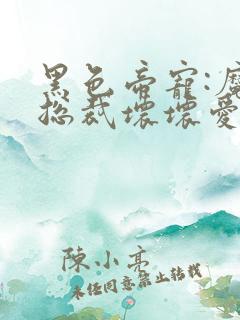 黑色帝寵:魔
總裁壞壞愛
陳小
未經同意禁止轉載